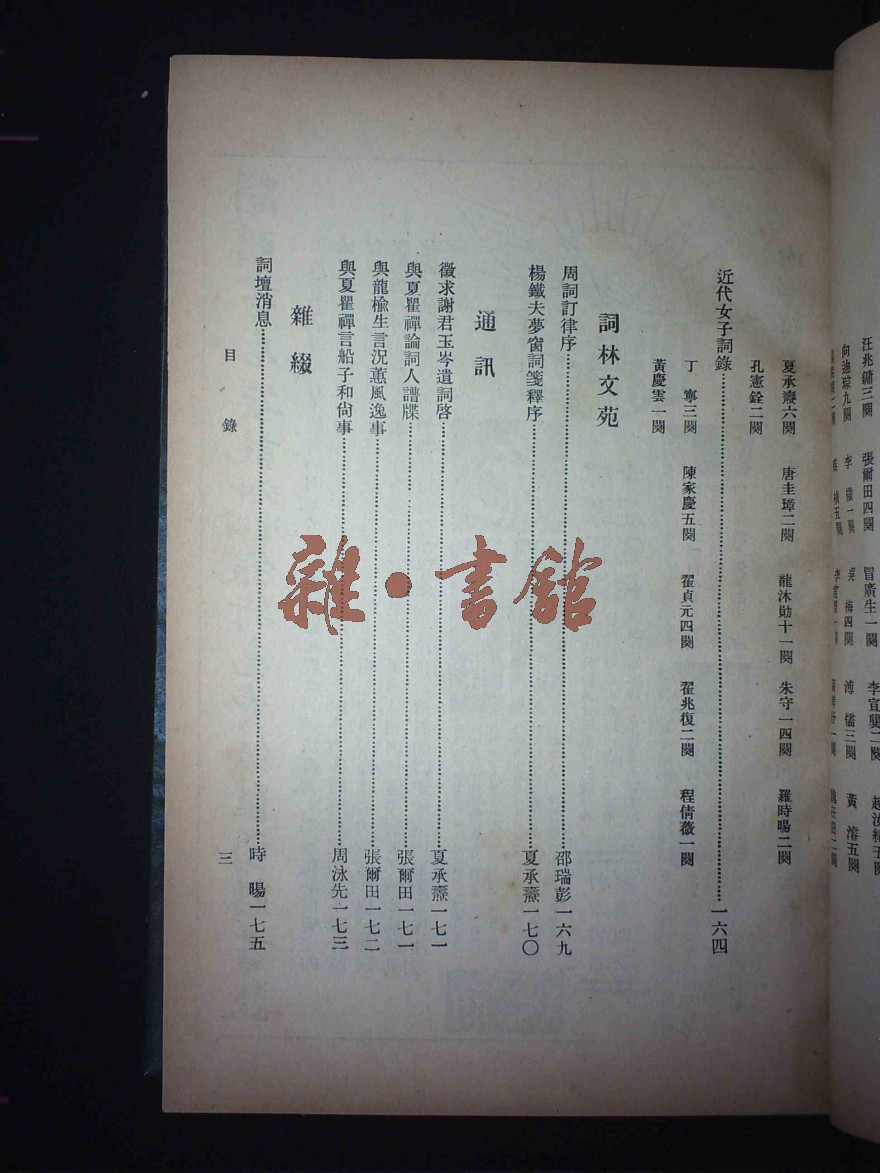 汪兆鏞三闋　張爾田四闋　冒廣生一闋　李宣龔二闋
向迪琮九闋　李　權一闋　吳　梅四闋　溥　儒三闋　黃　溶五闋
夏承燾六闋　唐圭璋二闋　龍沐勛十一闋　朱守一四闋　羅時暘二闋
孔憲銓二闋
近代女子詞錄……一六四
丁　寧三闋　陳家慶五闋　翟貞元四闋　翟兆復二闋　程倩薇一闋
黃慶雲一闋
詞林文苑
周詞訂律序……邵瑞彭一六九
楊鐵夫夢窗詞箋釋序……夏承燾一七〇
通訊
徵求謝君玉岑遺詞啓……夏承燾一七一
與夏瞿禪論詞人譜牒……張爾田一七一
與龍楡生言況蕙風逸事……張爾田一七二
與夏瞿禪言船子和尙事……周泳先一七三
雜綴
詞壇消息……時　暘一七五
目錄
三
雜·書館